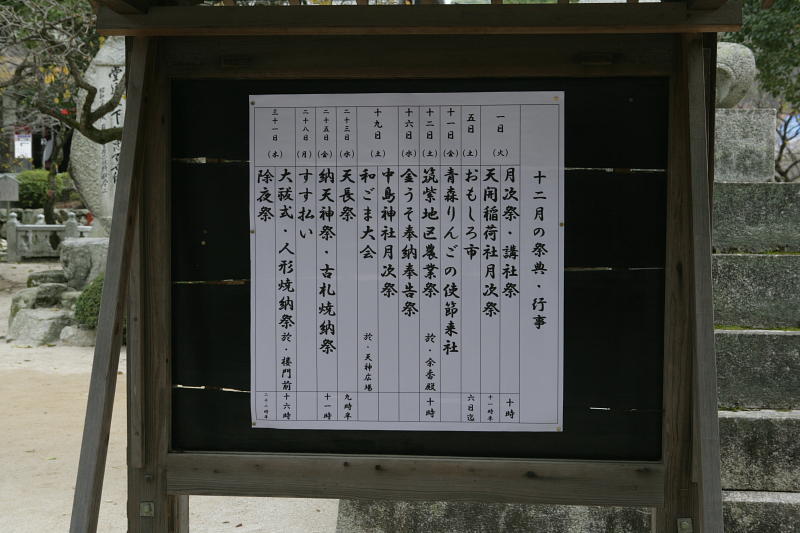 十二月の祭典・行事
一日(火) 月次祭・講社祭 十時
天開稲荷社月次祭 十一時半
五日(土) おもしろ市 六日迄
十一日(金) 青森りんごの使節来社
十二日(土) 筑紫地区農業祭 於・余香殿 十時
十六日(水) 金うそ奉納奉告祭
十九日(土) 中島神社月次祭
和ごま大会 於・天神広場
二十三日(水) 天長祭 九時半
二十五日(金) 納天神祭・古札焼納祭 十一時
二十八日(月) すす払い
三十一日(木) 大祓式・人形焼納祭 於・楼門前 十六時
除夜祭 二十二時半